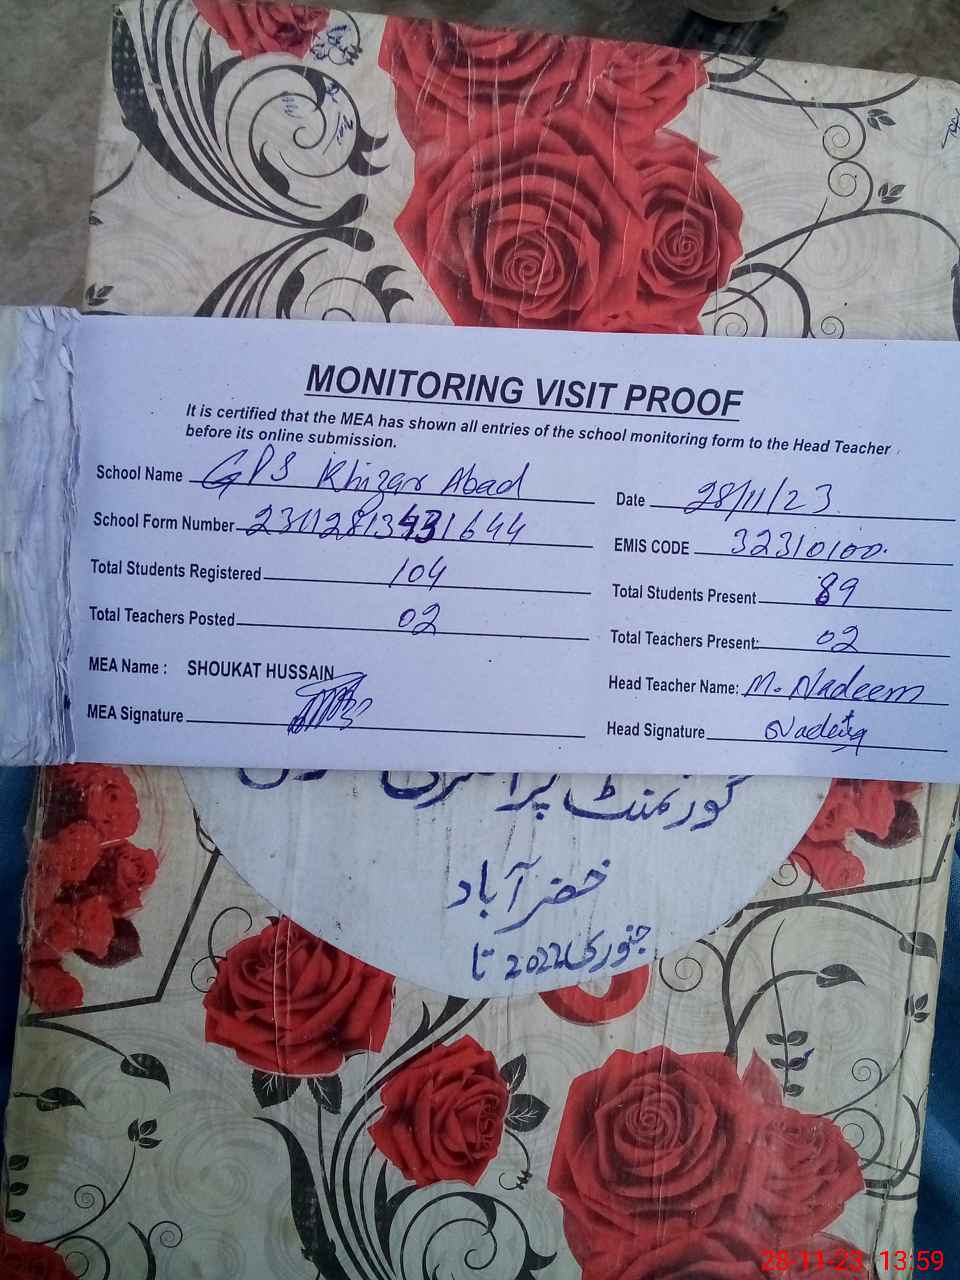 MONITORING VISIT PROOF
It is certified that the MEA has shown all entries of the school monitoring form to the Head Teacher
before its online submission.
School Name GPS Khizar Abad
Date 28/11/23
School Form Number
EMIS CODE 32310100
Total Students Registered 104
Total Students Present 89
Total Teachers Posted 02
Total Teachers Present: 02
MEA Name : SHOUKAT HUSSAIN
Head Teacher Name: M. Nadeem
MEA Signature
Head Signature
گورنمنٹ پرائمری سکول
خضر آباد
جنوری 2022 تا
28-11-23 13:59